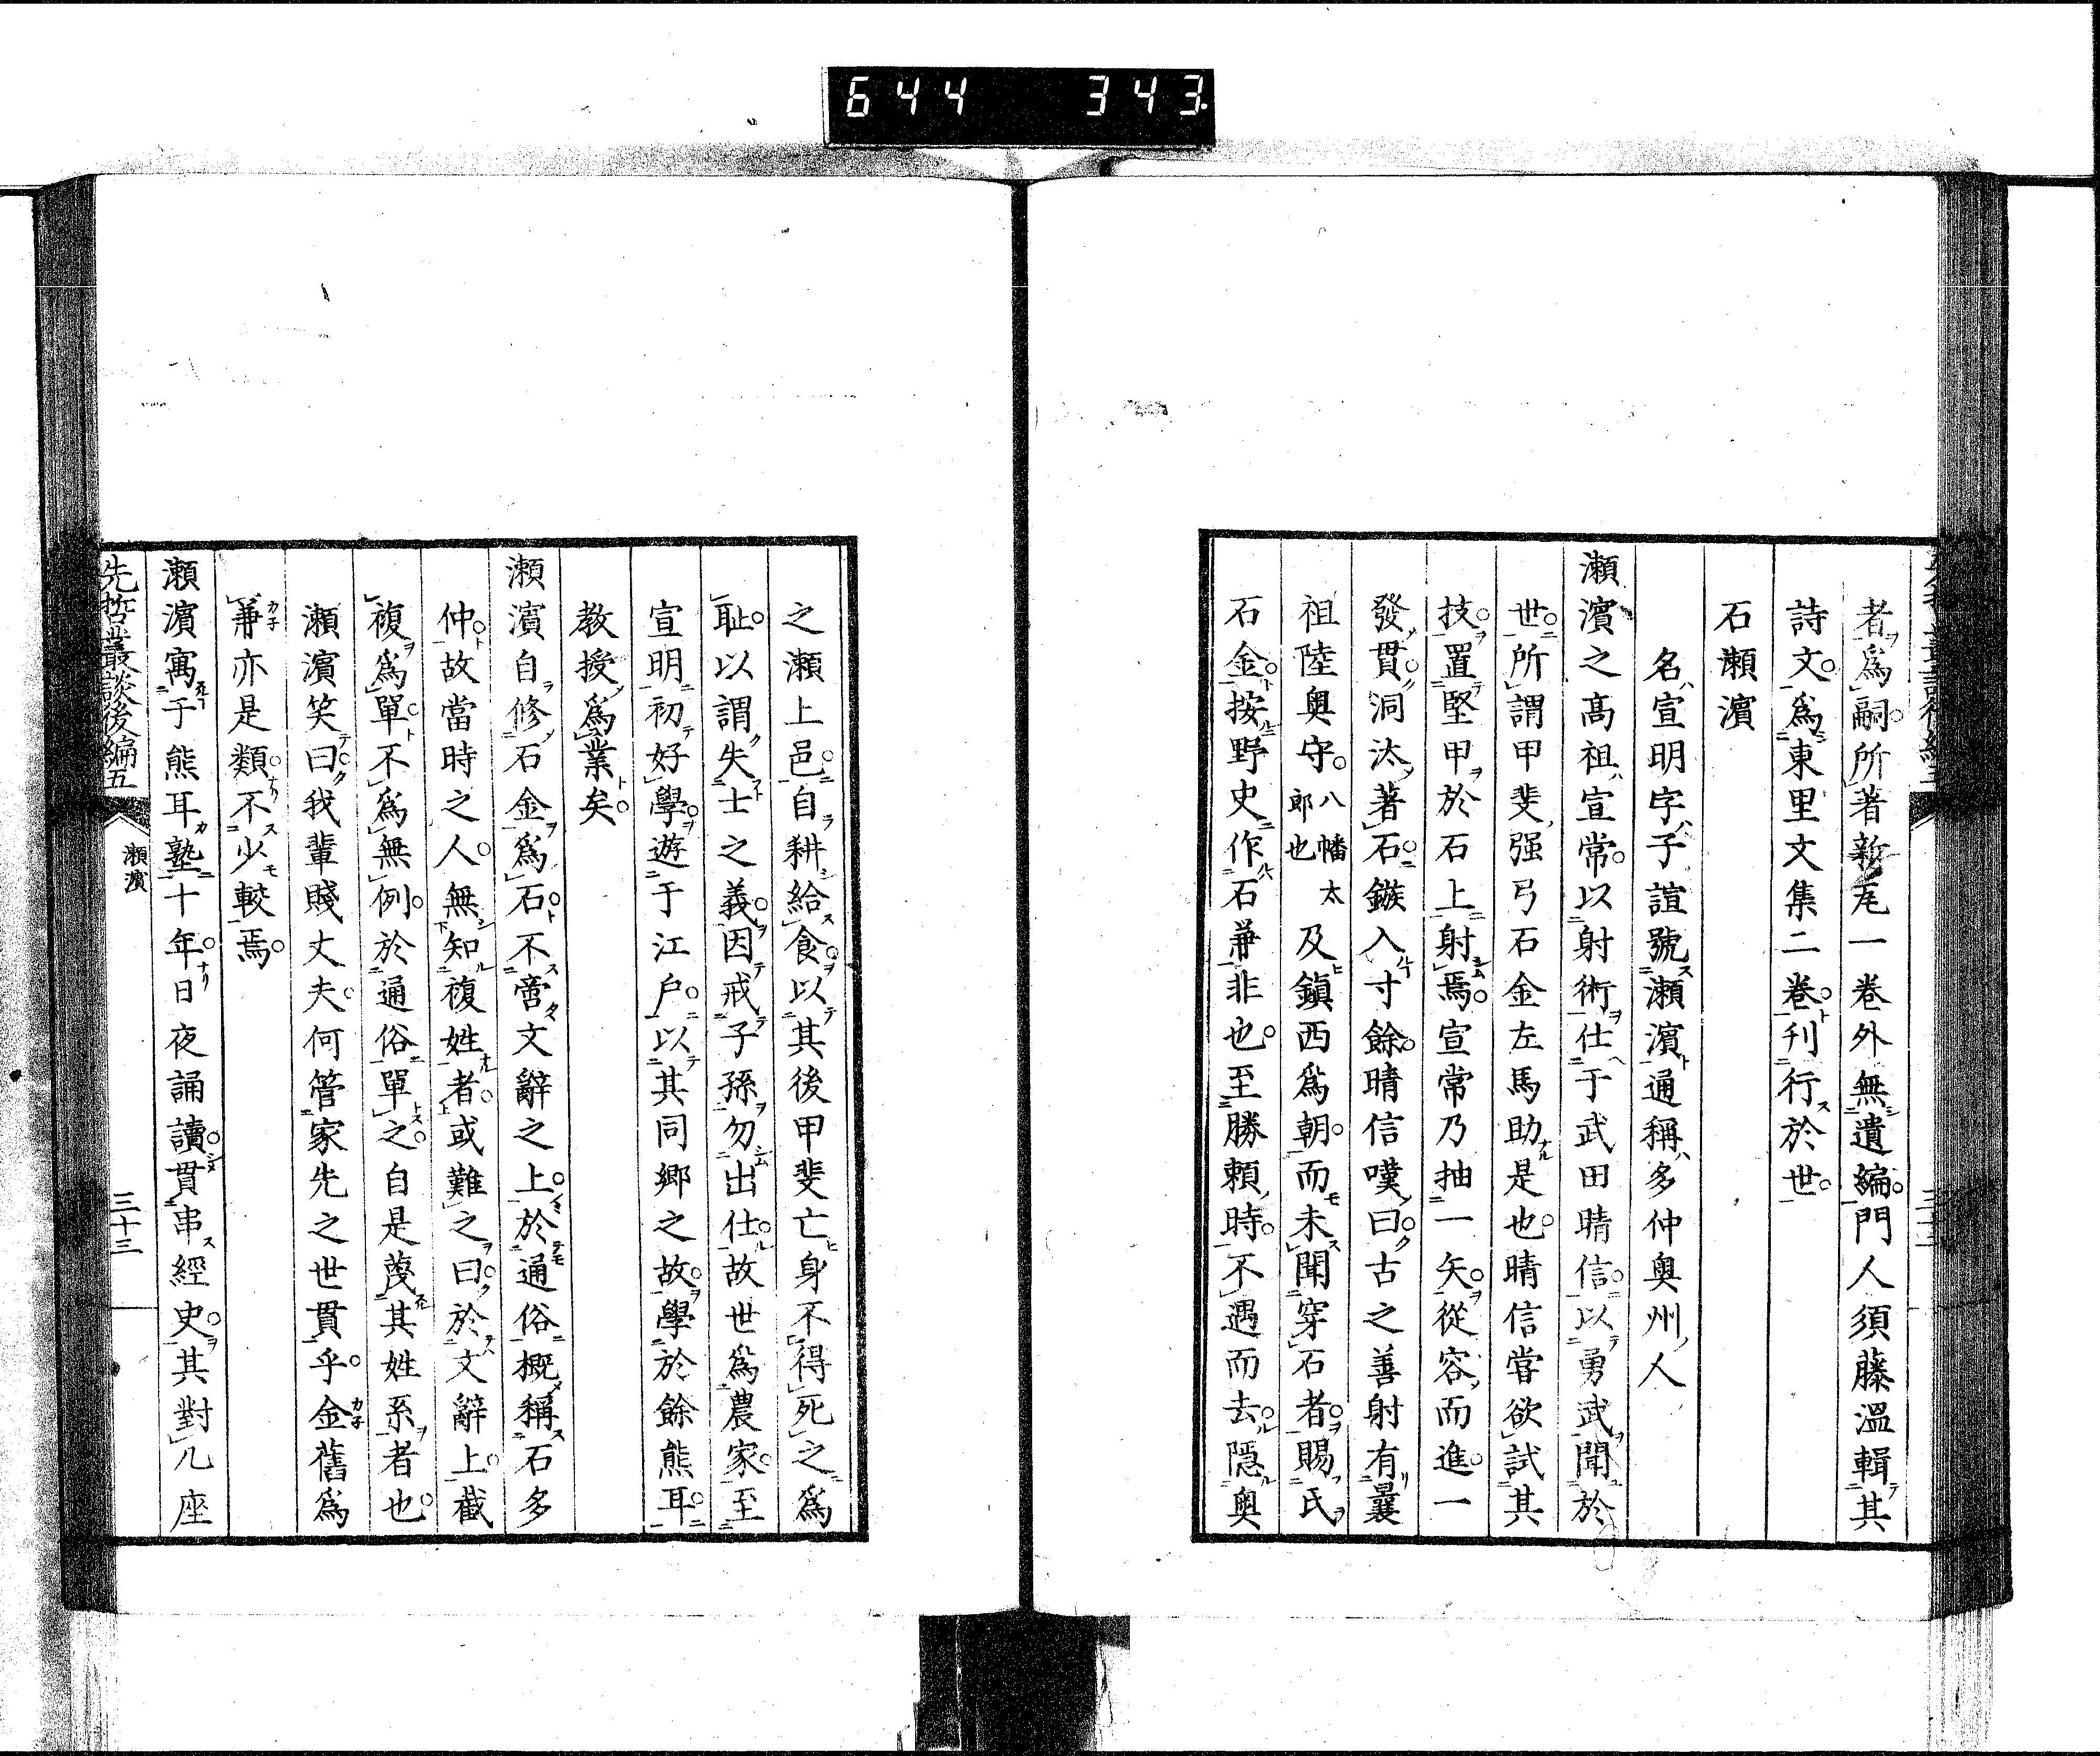 644 343.
者爲嗣所著新瓦一卷外無遺編門人須藤溫輯其
詩文爲東里文集二卷刊行於世
石瀬濵
名宣明字子諠號瀬濵通稱多仲奥州人
瀬濵之髙祖宣常以射術仕于武田晴信以勇武聞於
世所謂甲斐强弓石金左馬助是也晴信甞欲試其
技置堅甲於石上射焉宣常乃抽一矢從容而進一
發貫洞汰著石鏃入寸餘晴信嘆曰古之善射有曩
祖陸奥守八幡太郎也及鎮西爲朝而未聞穿石者賜氏
石金按野史作石兼非也至勝頼時不遇而去隠奥
之瀬上邑自耕給食以其後甲斐亡身不得死之爲
耻以謂失士之義因戒子孫勿出仕故世爲農家至
宣明初好學遊于江戸以其同郷之故學於餘熊耳
教授爲業矣
瀬濵自修石金爲石不啻文辭之上於通俗概稱石多
仲故當時之人無知複姓者或難之曰於文辭上截
複爲單不爲無例於通俗單之自是蔑其姓系者也
瀬濵笑曰我輩賤丈夫何管家先之世貫乎金舊爲
兼亦是類不少較焉
瀬濵寓于熊耳塾十年日夜誦讀貫串經史其對几座
先哲叢談後編五
瀬濵
三十三